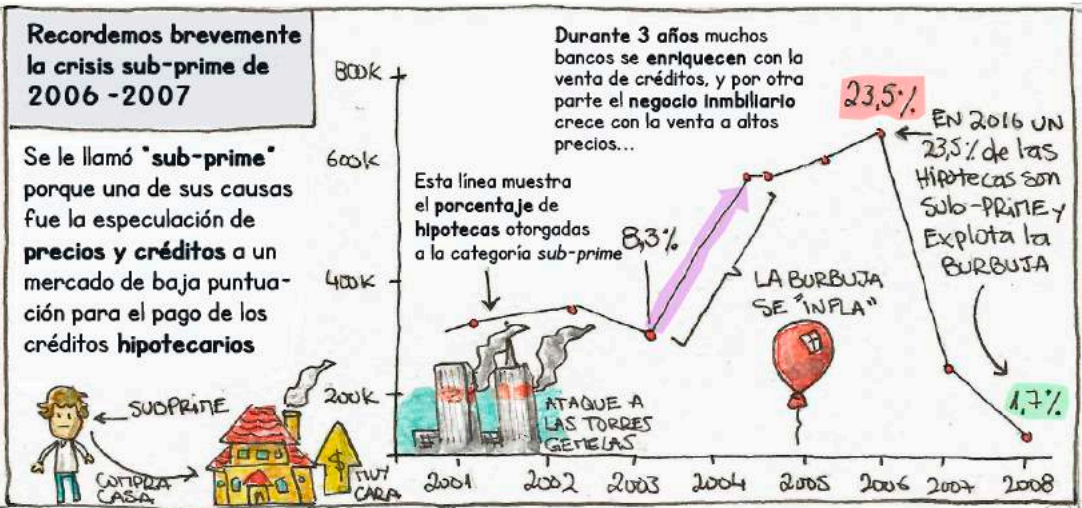 Recordemos brevemente
la crisis sub-prime de
2006 -2007
Se le llamó "sub-prime"
porque una de sus causas
fue la especulación de
precios y créditos a un
mercado de baja puntua-
ción para el pago de los
créditos hipotecarios
SUBPRIME
COMPRA
CASA
MUY
CARA
$
800K
600K
400K
200K
Esta línea muestra
el porcentaje de
hipotecas otorgadas
a la categoría sub-prime
8,3%
Durante 3 años muchos
bancos se enriquecen con la
venta de créditos, y por otra
parte el negocio inmbiliario
crece con la venta a altos
precios...
23,5%
EN 2016 UN
23,5% de las
Hipotecas son
SUB-PRIME y
Explota la
BURBUJA
LA BURBUJA
SE "INFLA"
ATAQUE A
LAS TORRES
GEMELAS
1,7%
2001 2002 2003 2004 2005 2006 2007 2008